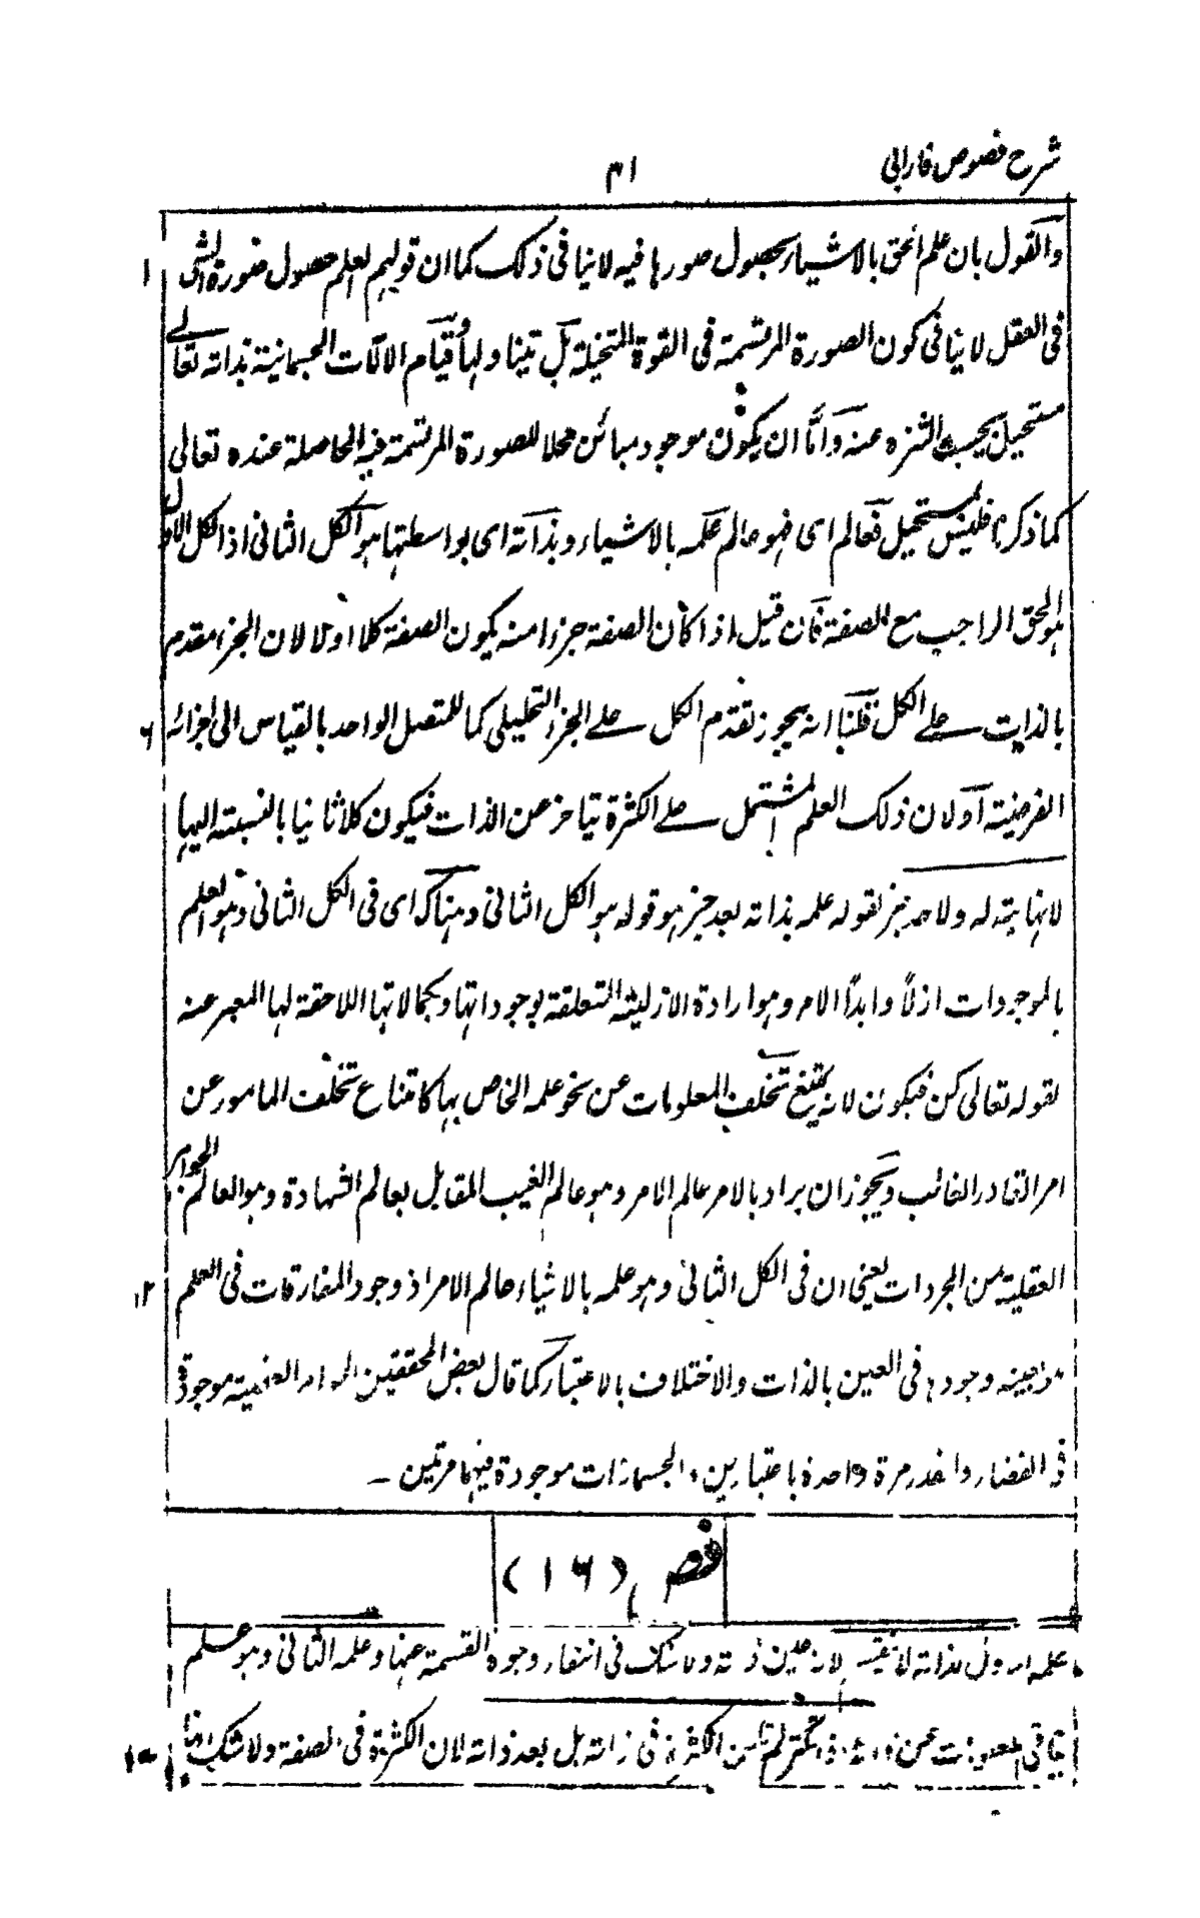 شرح فصوص فارابی
۳۱
والقول بان علم الحق بالاشیاء بحصول صورها فیه لا ینافی ذلک کما ان قولهم العلم حصول صورة الشی
۱
فی العقل لا ینافی کون الصورة المرتسمة فی القوة المتخیلة بل تیناولها وقیام الآلات الجسمانیة بذاته تعالے
مستحیل یجب التنزه عنه واما ان یکون موجود مبائن محلا للصورة المرتسمة فیه الحاصلة عنده تعالی
کما ذکرنا فلیس بمستحیل فعالم ای فهو عالم علمه بالاشیاء وبذاته ای بواسطتها هو الکل الثانی اذ الکل الاول
هو الحق الواجب مع الصفة فان قیل اذا کان الصفة جزءا منه یکون الصفة کلا اولا لان الجزء مقدم
بالذات علے الکل قلنا انه یجوز تقدم الکل علے الجزء التحلیلی کما للمتصل الواحد بالقیاس الی اجزائه
۶
الفرضیة اولان ذلک العلم المشتمل علے الکثرة یتاخر عن الذات فیکون کلا ثانیا بالنسبة الیها
لا نهایة له ولا حد خبر لقوله علمه بذاته بعد خبر هو قوله هو الکل الثانی وهناک ای فی الکل الثانی وهو العلم
بالموجودات ازلاً وابداً الامر وهو ارادة الازلیة المتعلقة بوجوداتها وبکمالاتها اللاحقة لها المعبر عنه
لقوله تعالی کن فیکون لانه یمتنع تخلف المعلومات عن نحو علمه الخاص بها کامتناع تخلف المامور عن
امر القادر الغالب ویجوز ان یراد بالامر عالم الامر وهو عالم الغیب المقابل بعالم الشهادة وهو العالم الجواهر
العقلیة من المجردات یعنی ان فی الکل الثانی وهو علمه بالاشیاء عالم الامر اذ وجود المفارقات فی العلم
۱۲
بعینه وجودها فی العین بالذات والاختلاف بالاعتبار کما قال بعض المحققین الجواهر العقلیة موجودة
فی القضاء والقدر مرة واحدة باعتبارین والجسمانیات موجودة فیهما مرتین ـ
فص (۱۶)
علمه الاول لذاته لا ینقسم لانه عین ذاته ولا شک فی انتفاء وجوه القسمة عنها وعلمه الثانی وهو علم
بباقی المعلومات عن ذاته اذا تکثر لم تکن الکثرة فی ذاته بل بعد ذاته لان الکثرة فی الصفة ولا شک انها